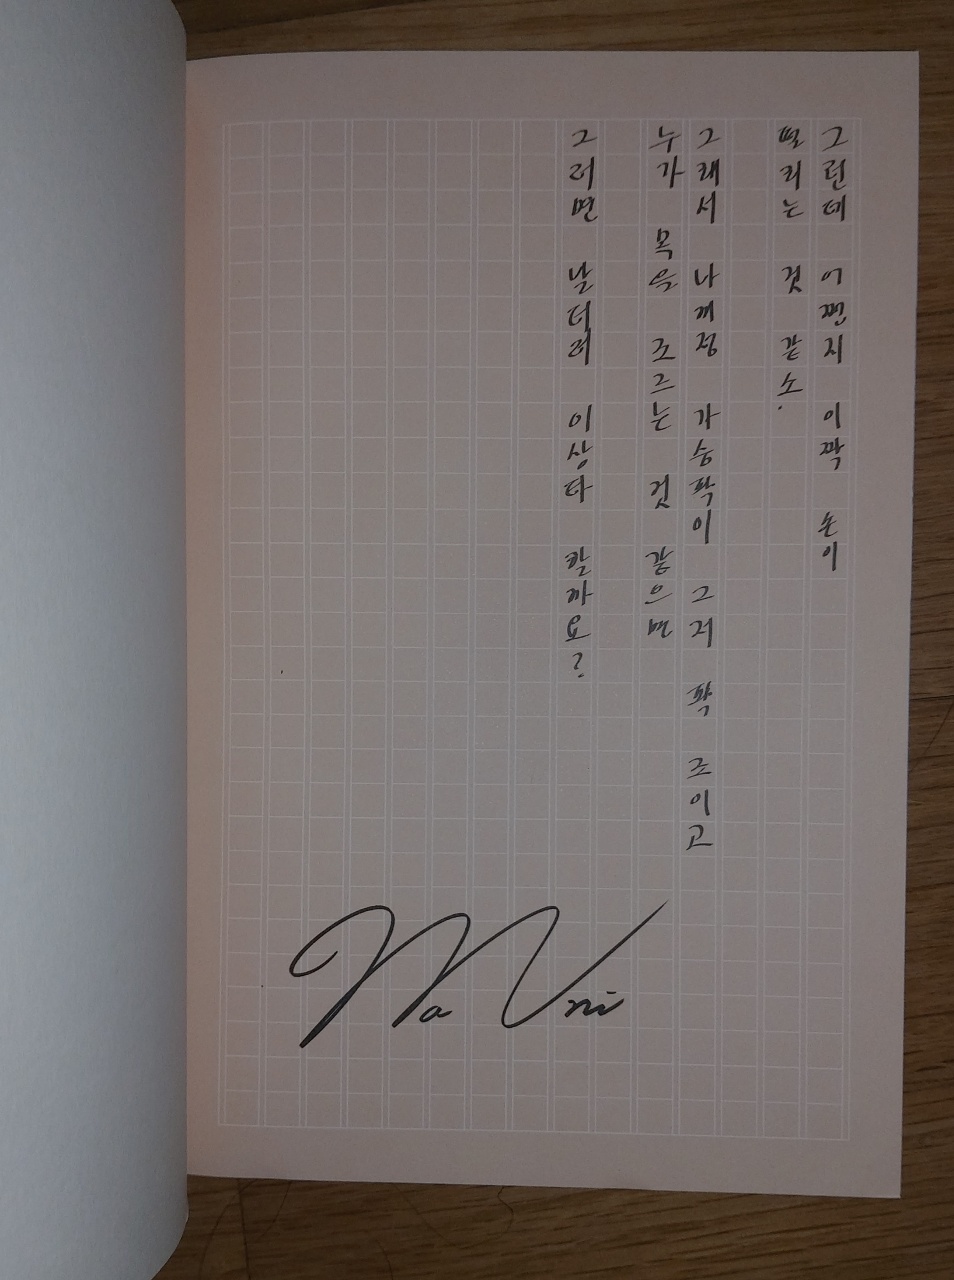 그런데 어쩐지 이짝 손이
떨리는 것 같소.
그래서 나꺼정 가슴팍이 그저 팍 조이고
누가 목을 조르는 것 같으면
그러면 날더러 이상타 칼까요?
Ma Uni